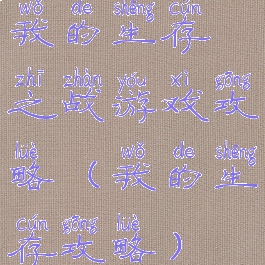 wǒ de shēng cún
我的生存
zhī zhàn yóu xì gōng
之战游戏攻
lüè wǒ de shēng
略（我的生
cún gōng lüè
存攻略）